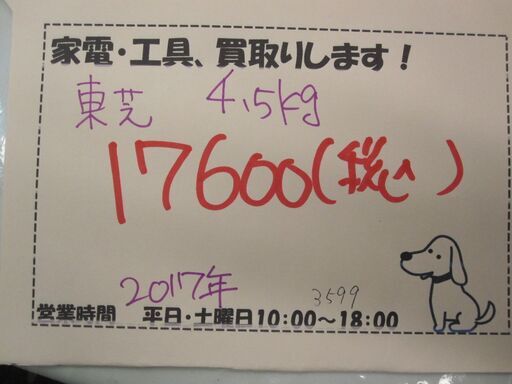 家電・工具、買取りします！
東芝 4,5kg
17600(税込)
2017年
3599
営業時間 平日・土曜日10:00～18:00